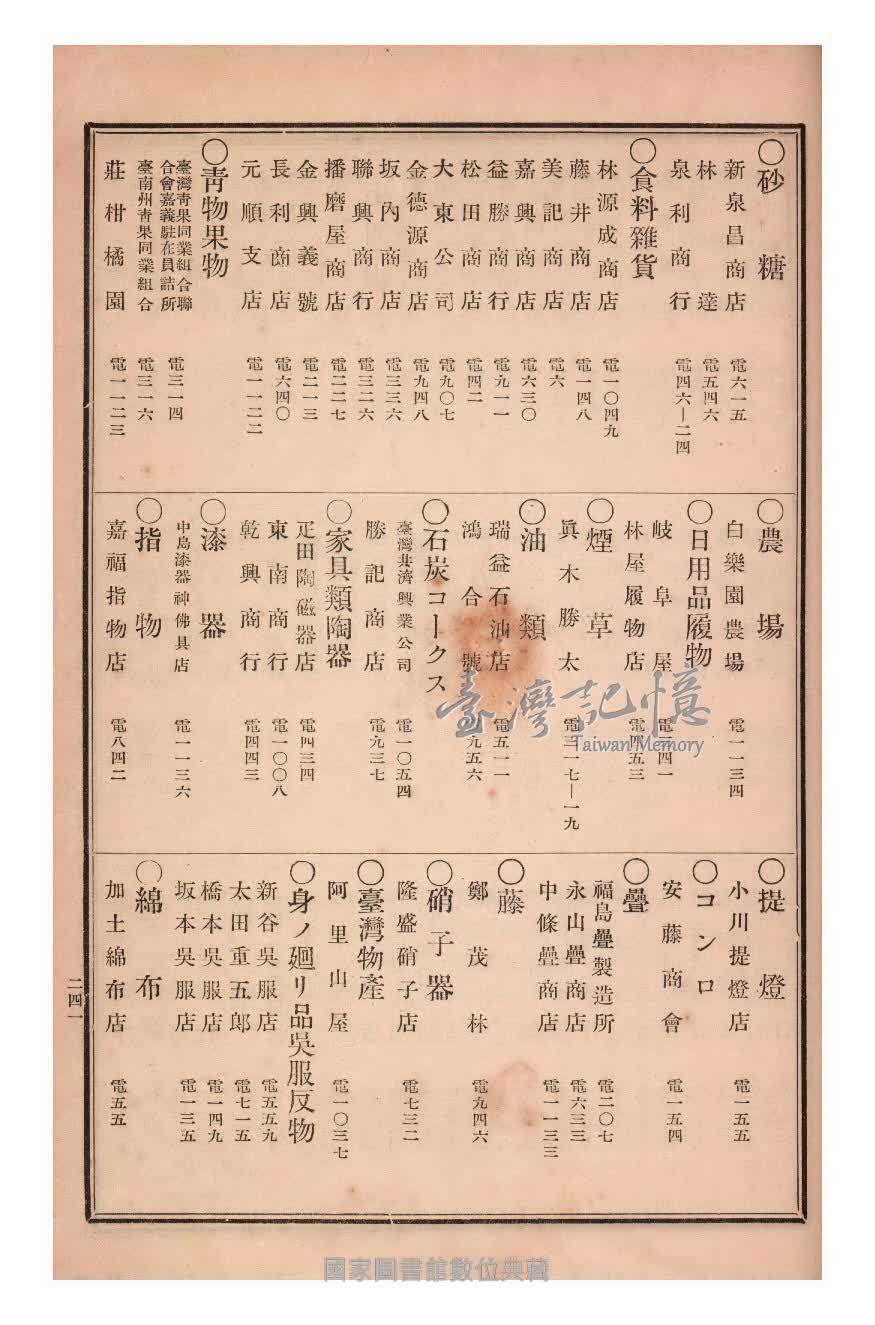 〇砂糖
新泉昌商店 電六一五
林達 電五四六
泉利商行 電四六—二四
〇食料雜貨
林源成商店 電一〇四九
藤井商店 電一四八
美記商店 電六
嘉興商店 電六三〇
益勝商行 電九一一
松田商店 電四二
大東公司 電九〇七
金德源商店 電九四八
坂內商店 電三三六
聯興商行 電三二六
播磨屋商店 電二二七
金興義號 電二一三
長利商店 電六四〇
元順支店 電一一二二
〇青物果物
臺灣青果同業組合聯
合會嘉義駐在員詰所 電三一四
臺南州青果同業組合 電三一六
莊柑橘園 電一一二三
〇農場
白樂園農場 電一一三四
〇日用品履物
岐阜屋 電二四一
林屋履物店 電四五三
〇煙草
眞木勝太 電三一七—一九
〇油類
瑞益石油店 電五一一
鴻合號 九五六
〇石炭コークス
臺灣共濟興業公司 電一〇五四
勝記商店 電九三七
〇家具類陶器
疋田陶磁器店 電四三四
東南商行 電一〇〇八
乾興商行 電四四三
〇漆器
中島漆器神佛具店 電一一三六
〇指物
嘉福指物店 電八四二
〇提燈
小川提燈店 電一五五
〇コンロ
安藤商會 電一五四
〇疊
福島疊製造所 電二〇七
永山疊商店 電六三三
中條疊商店 電一一三三
〇藤
鄭茂林 電九四六
〇硝子器
隆盛硝子店 電七三二
〇臺灣物產
阿里山屋 電一〇三七
〇身ノ廻リ品吳服反物
新谷吳服店 電五五九
太田重五郎 電七一五
橋本吳服店 電一四九
坂本吳服店 電一三五
〇綿布
加土綿布店 電五五
二四一
臺灣記憶
Taiwan Memory
國家圖書館數位典藏